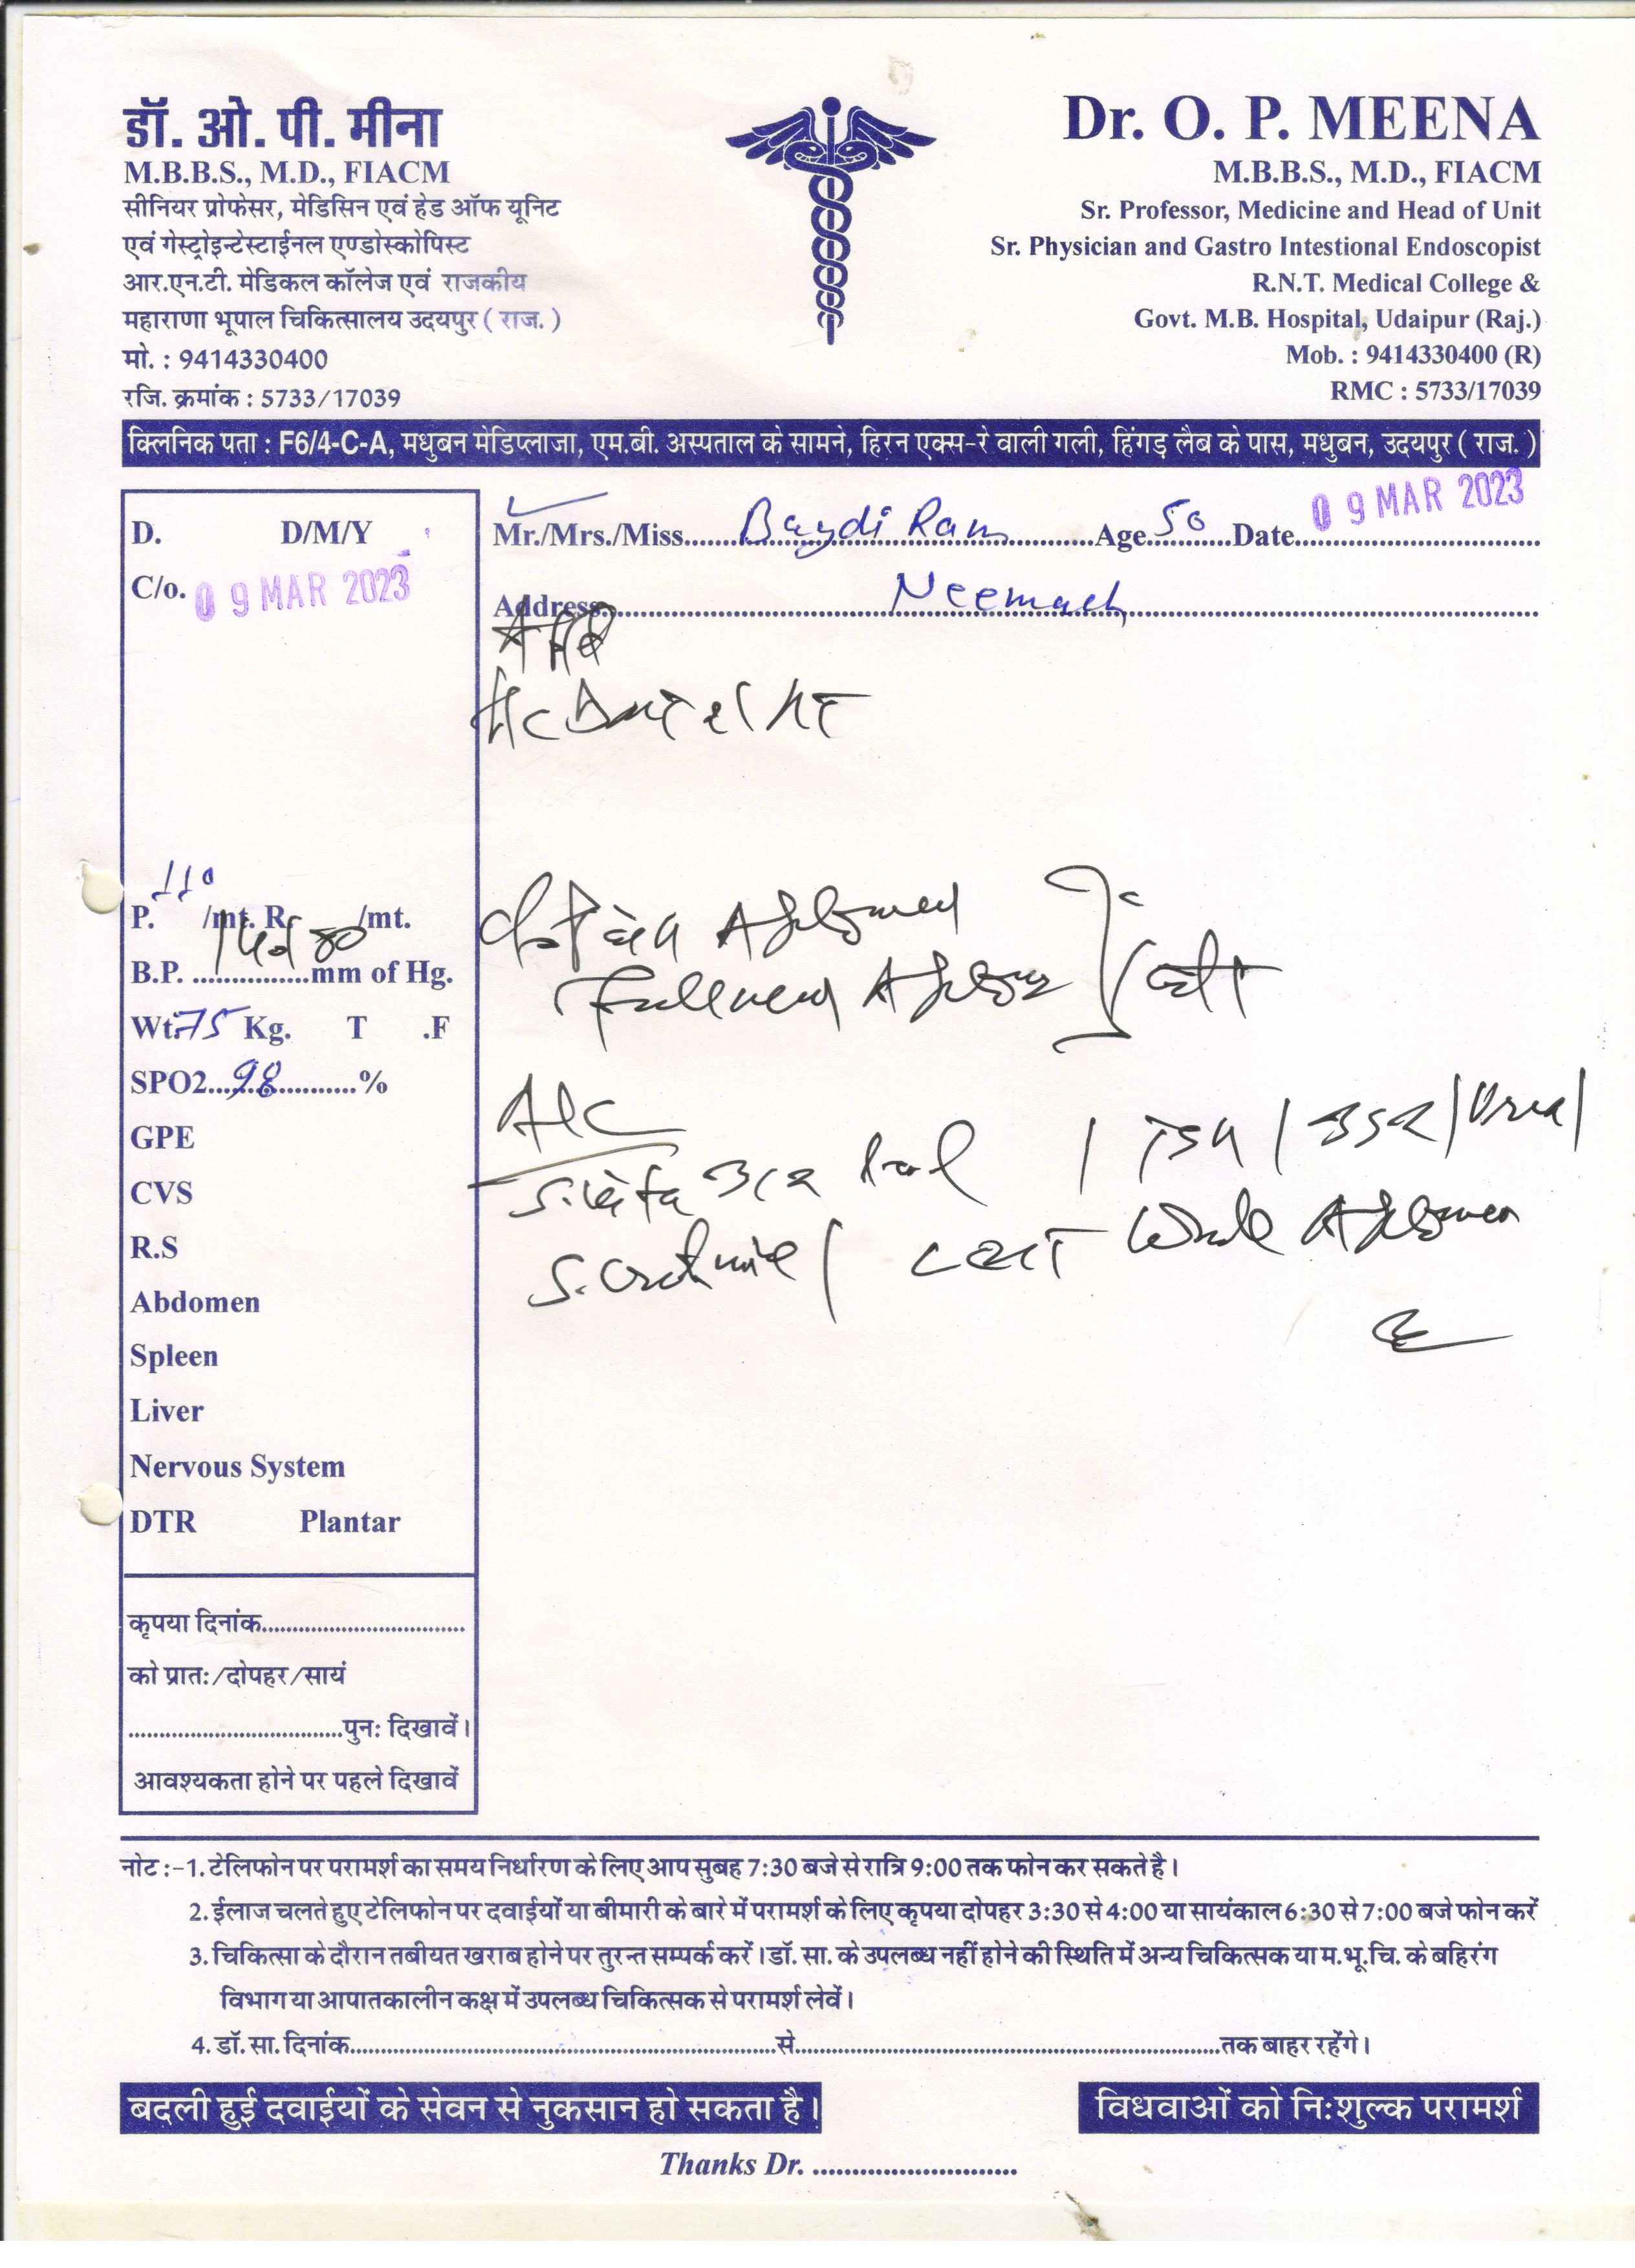 डॉ. ओ. पी. मीना
M.B.B.S., M.D., FIACM
सीनियर प्रोफेसर, मेडिसिन एवं हेड ऑफ यूनिट
एवं गेस्ट्रोइन्टेस्टाईनल एण्डोस्कोपिस्ट
आर.एन.टी. मेडिकल कॉलेज एवं राजकीय
महाराणा भूपाल चिकित्सालय उदयपुर ( राज. )
मो. : 9414330400
रजि. क्रमांक : 5733/17039
Dr. O. P. MEENA
M.B.B.S., M.D., FIACM
Sr. Professor, Medicine and Head of Unit
Sr. Physician and Gastro Intestional Endoscopist
R.N.T. Medical College &
Govt. M.B. Hospital, Udaipur (Raj.)
Mob. : 9414330400 (R)
RMC : 5733/17039
क्लिनिक पता : F6/4-C-A, मधुबन मेडिप्लाजा, एम.बी. अस्पताल के सामने, हिरन एक्स-रे वाली गली, हिंगड़ लैब के पास, मधुबन, उदयपुर ( राज. )
Mr./Mrs./Miss Ram Age 50 Date 09 MAR 2023
Address Neemach
D. D/M/Y
C/o. 09 MAR 2023
P. 110 /mt. R. /mt.
B.P. mm of Hg.
Wt. 75 Kg. T .F
SPO2 98 %
GPE
CVS
R.S
Abdomen
Spleen
Liver
Nervous System
DTR Plantar
कृपया दिनांक
को प्रातः/दोपहर/सायं
पुनः दिखावें।
आवश्यकता होने पर पहले दिखावें
Abdomen
A1C
/ Urea /
S. Creatinine / Whole Abdomen
नोट :-1. टेलिफोन पर परामर्श का समय निर्धारण के लिए आप सुबह 7:30 बजे से रात्रि 9:00 तक फोन कर सकते है।
2. ईलाज चलते हुए टेलिफोन पर दवाईयों या बीमारी के बारे में परामर्श के लिए कृपया दोपहर 3:30 से 4:00 या सायंकाल 6:30 से 7:00 बजे फोन करें
3. चिकित्सा के दौरान तबीयत खराब होने पर तुरन्त सम्पर्क करें। डॉ. सा. के उपलब्ध नहीं होने की स्थिति में अन्य चिकित्सक या म.भू.चि. के बहिरंग
विभाग या आपातकालीन कक्ष में उपलब्ध चिकित्सक से परामर्श लेवें।
4. डॉ. सा. दिनांक से तक बाहर रहेंगे।
बदली हुई दवाईयों के सेवन से नुकसान हो सकता है।
विधवाओं को निःशुल्क परामर्श
Thanks Dr.